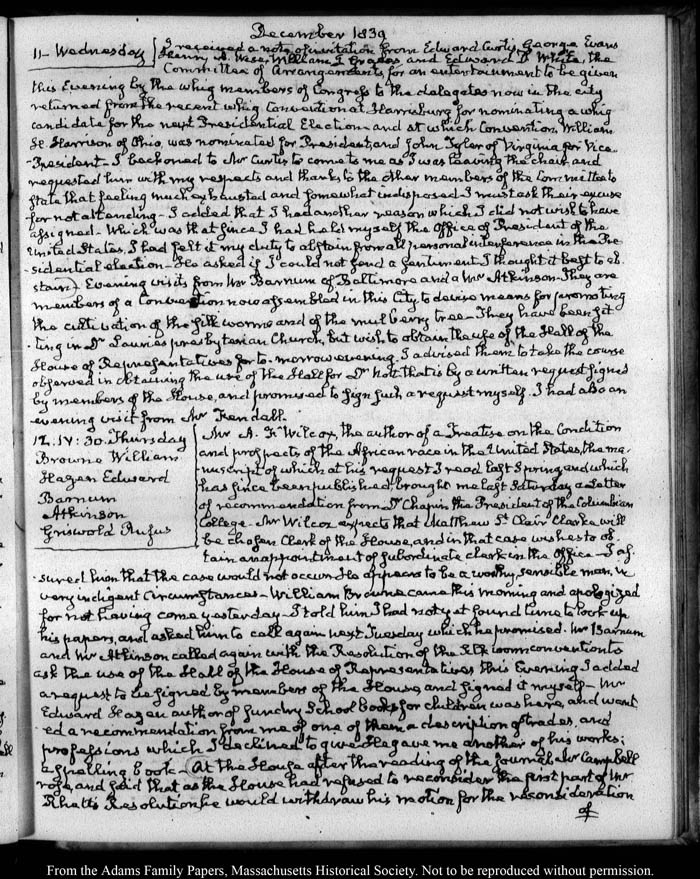 December 1839
11. Wednesday
I received a note of invitation from Edward Curtis, George Evans
Henry A. Wise, William J. Graves, and Edward D White, the
Committee of Arrangements for an entertainment to be given
this Evening by the whig members of Congress to the delegates now in the city
returned from the recent whig Convention at Harrisburg for nominating a whig
candidate for the next Presidential Election, and at which Convention, William
H. Harrison of Ohio, was nominated for President, and John Tyler of Virginia for Vice-
President– I beckoned to Mr Curtis to come to me as I was leaving the chair, and
requested him with my respects and thanks to the other members of the Committee to
state that feeling much exhausted and somewhat indisposed I must ask their excuse
for not attending– I added that I had another reason which I did not wish to have
assigned– Which was that since I had held myself the Office of President of the
United States, I had felt it my duty to abstain from all personal interference in the Pre-
sidential election– He asked if I could not send a sentiment. I thought it best to ab-
stain. Evening visits from Mr Barnum of Baltimore and a Mr Atkinson– They are
members of a Convention now assembled in this City to devise means for promoting
the cultivation of the silk worm and of the mulberry tree– They have been sit-
ting in Dr Laurie's presbyterian Church, but wish to obtain the use of the Hall of the
House of Representatives for to-morrow evening. I advised them to take the course
observed in obtaining the use of the Hall for Dr Nott that is by a written request signed
by members of the House, and promised to sign such a request myself. I had also an
evening visit from Mr Kendall.
12. IV: 30. Thursday
Browne William
Hazen Edward
Barnum
Atkinson
Griswold Rufus
Mr A. F. Wilcox, the author of a Treatise on the Condition
and prospects of the African race in the United States, the ma-
nuscript of which at his request I read last Spring, and which
has since been published, brought me last Saturday a Letter
of recommendation from Dr Chapin the President of the Columbian
College– Mr Wilcox expects that Matthew St Clair Clarke will
be chosen Clerk of the House, and in that case wishes to ob-
tain an appointment of subordinate clerk in the Office– I as-
sured him that the case would not occur. He appears to be a worthy, sensible man, in
very indigent Circumstances– William Browne came this morning and apologized
for not having come yesterday– I told him I had not yet found time to look up
his papers, and asked him to call again next Tuesday which he promised. Mr Barnum
and Mr Atkinson called again with the Resolution of the Silk worm convention to
ask the use of the Hall of the House of Representatives this Evening. I added
a request to be signed by members of the House, and signed it myself– Mr
Edward Hazen author of sundry School books for children was here, and want-
ed a recommendation from me of one of them a description of trades, and
professions which I declined to give. He gave me another of his works;
a spelling book– At the House after the reading of the journal Mr Campbell
rose, and said that as the House had refused to reconsider the first part of Mr
Rhett's Resolution, he would withdraw his motion for the reconsideration
of
From the Adams Family Papers, Massachusetts Historical Society. Not to be reproduced without permission.